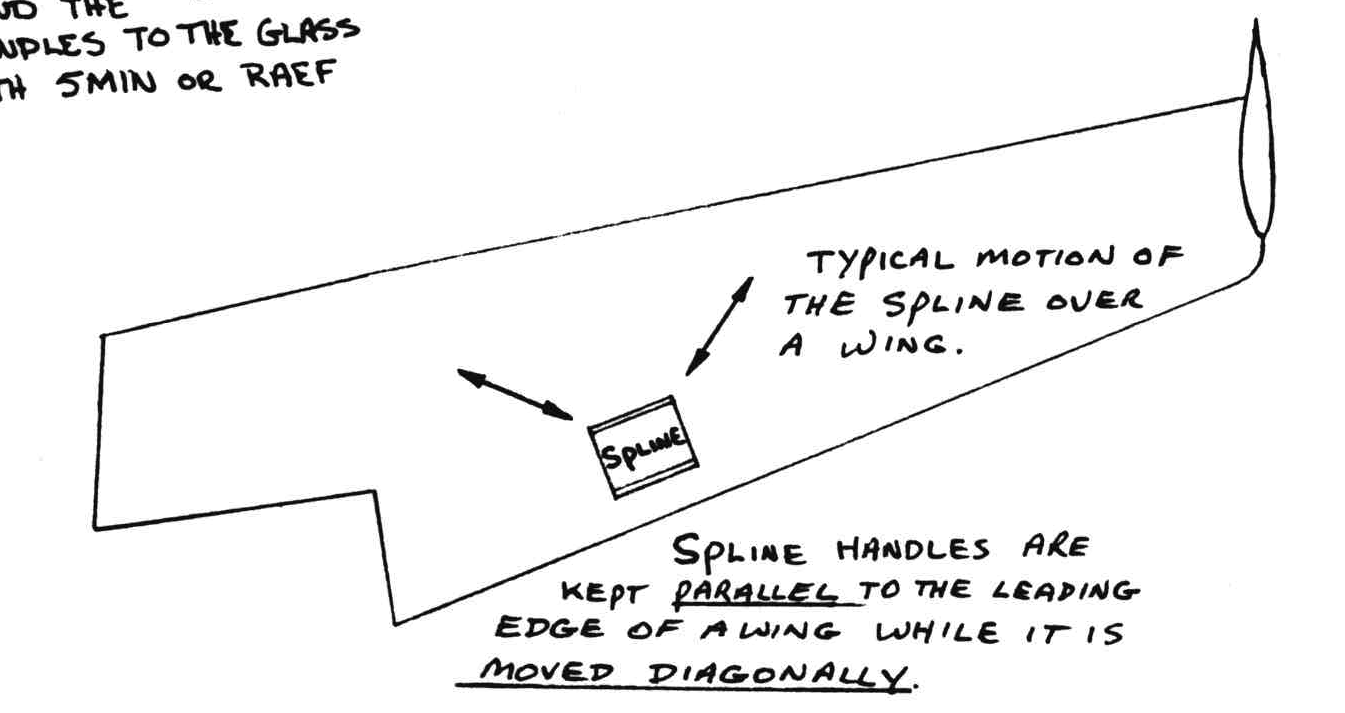 THE
TO THE GLASS
5MIN OR RAEF
TYPICAL MOTION OF
THE SPLINE OVER
A WING.
SPLINE
SPLINE HANDLES ARE
KEPT PARALLEL TO THE LEADING
EDGE OF A WING WHILE IT IS
MOVED DIAGONALLY.